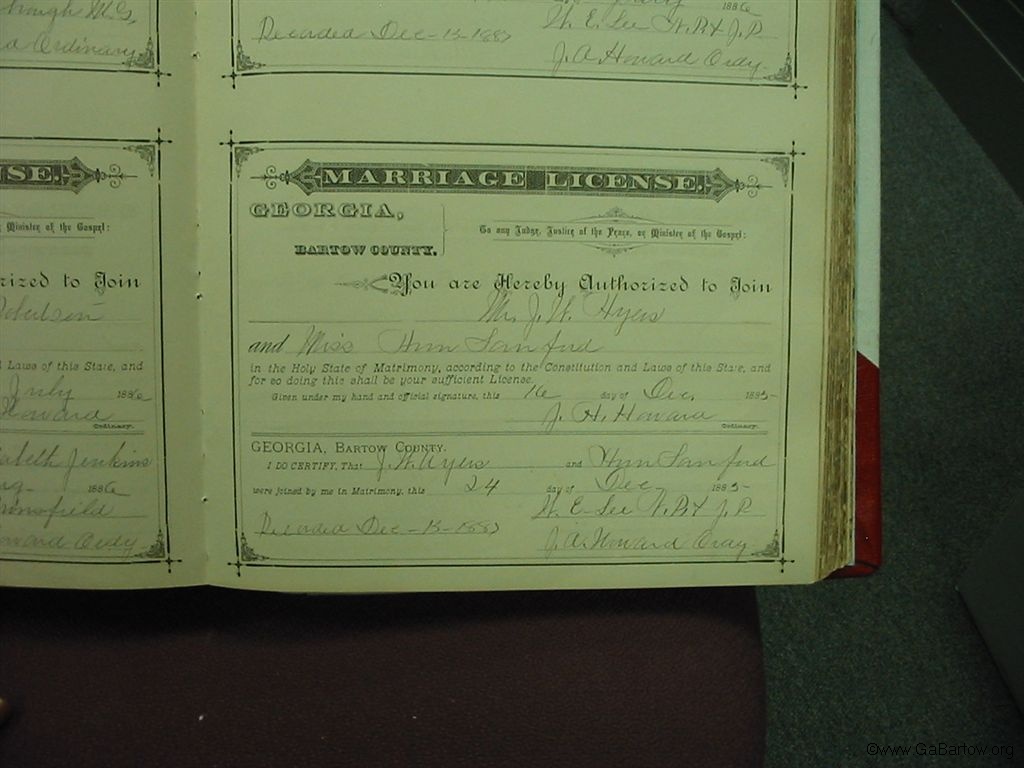 hough M.G,
d Ordinary
1886
Recorded Dec-13-1887
W. E. Lee N.P.X J.P.
J. A. Howard Ordy.
NSE.
Minister of the Gospel:
rized to Join
obertson
l Laws of this State, and
July 1886
Howard
Ordinary.
abeth Jenkins
ug 1886
oward Ordy
MARRIAGE LICENSE.
GEORGIA,
BARTOW COUNTY.
To any Judge, Justice of the Peace, or Minister of the Gospel:
You are Hereby Authorized to Join
Mr. J. W. Ayers
and Miss Ann Sanford
in the Holy State of Matrimony, according to the Constitution and Laws of this State, and
for so doing this shall be your sufficient License.
Given under my hand and official signature, this 16 day of Dec. 1885-
J. A. Howard
Ordinary.
GEORGIA, BARTOW COUNTY.
I DO CERTIFY, That J. W. Ayers and Ann Sanford
were joined by me in Matrimony, this 24 day of Dec 1885-
W. E. Lee N.P.X J.P.
Recorded Dec-13-1887
J. A. Howard Ordy
©www.GaBartow.org